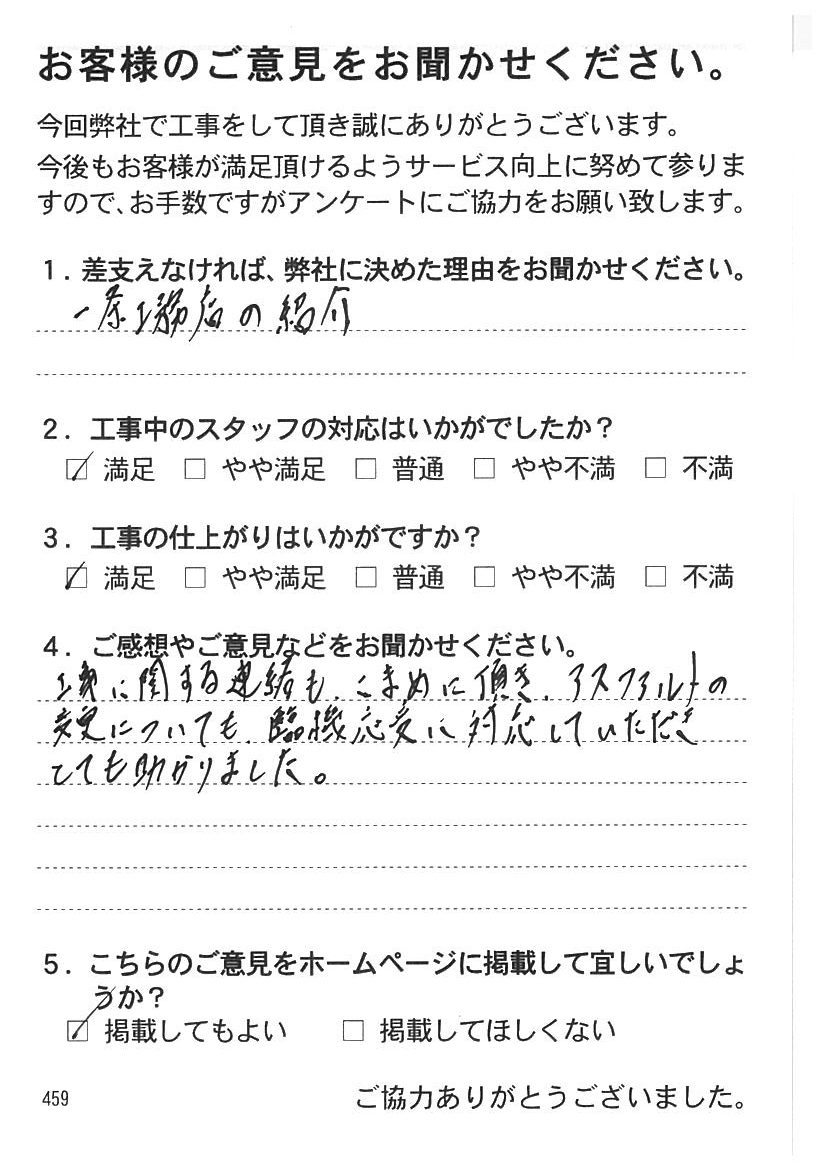 お客様のご意見をお聞かせください。
今回弊社で工事をして頂き誠にありがとうございます。
今後もお客様が満足頂けるようサービス向上に努めて参りま
すので、お手数ですがアンケートにご協力をお願い致します。
1．差支えなければ、弊社に決めた理由をお聞かせください。
一条工務店の紹介
2．工事中のスタッフの対応はいかがでしたか？
☑ 満足 □ やや満足 □ 普通 □ やや不満 □ 不満
3．工事の仕上がりはいかがですか？
☑ 満足 □ やや満足 □ 普通 □ やや不満 □ 不満
4．ご感想やご意見などをお聞かせください。
工事に関する連絡も、こまめに頂き、アスファルトの
変更についても、臨機応変に対応していただき
とても助かりました。
5．こちらのご意見をホームページに掲載して宜しいでしょ
うか？
☑ 掲載してもよい □ 掲載してほしくない
459 ご協力ありがとうございました。